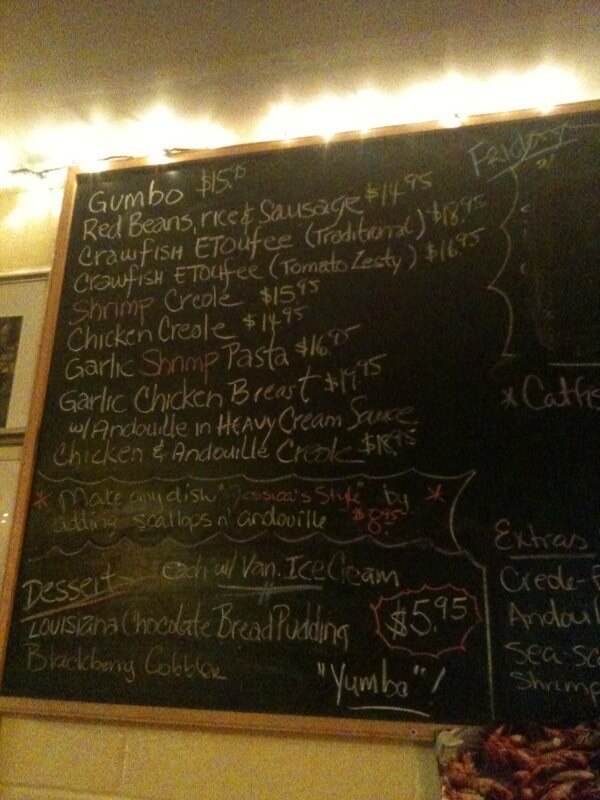 Gumbo $15.95
Red Beans, rice & Sausage $14.95
Crawfish ETOUfee (Traditional) $18.95
Crawfish ETOUfee (Tomato Zesty) $16.95
Shrimp Creole $15.95
Chicken Creole $14.95
Garlic Shrimp Pasta $16.95
Garlic Chicken Breast $19.95
w/Andouille in HEAVY Cream Sauce
Chicken & Andouille Creole $18.95
* Make any dish "Jessica's Style" by *
adding scallops n' andouille $8.95
Dessert each w/ Van. Ice Cream
Louisiana Chocolate Bread Pudding $5.95
Blackberry Cobbler
"Yumba"!
Friday
* Catfis
Extras
Creole-
Andouil
Sea-sc
Shrimp